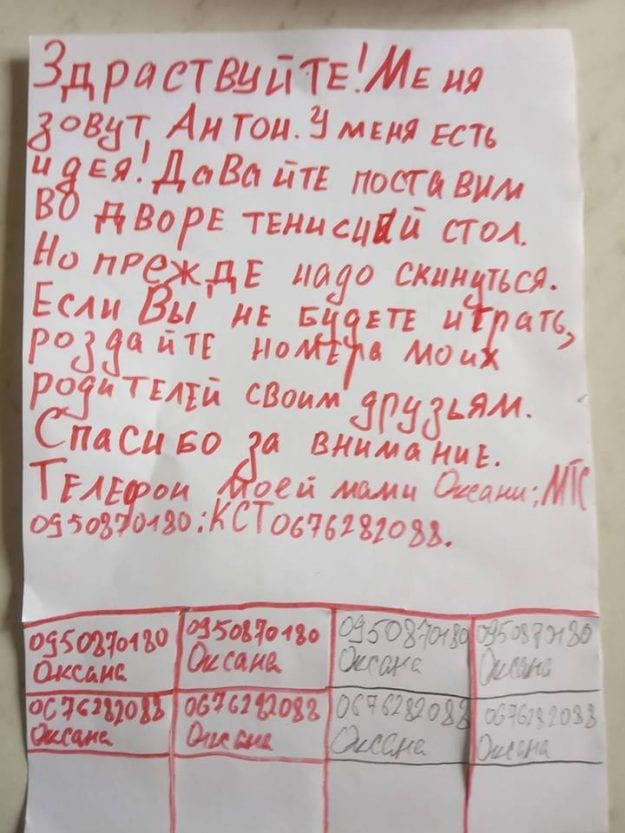 Здраствуйте! Меня
зовут Антон. У меня есть
идея! Давайте поставим
во дворе тенисный стол.
Но прежде надо скинуться.
Если Вы не будете играть,
роздайте номера моих
родителей своим друзьям.
Спасибо за внимание.
Телефон моей мами Оксани: МТС
0950870180: КСТ0676282088.
0950870180 0950870180 0950870180 0950870180
Оксана Оксана Оксана Оксана
0676282088 0676282088 0676282088 0676282088
Оксана Оксана Оксана Оксана